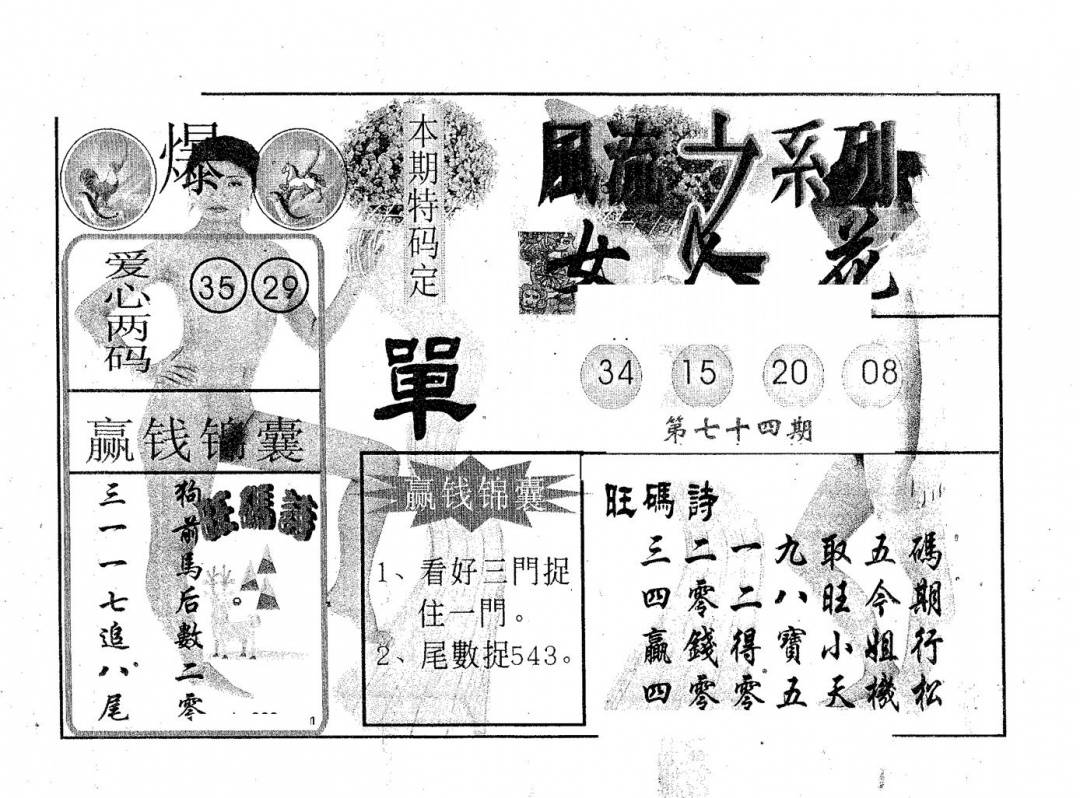 爆
爱心两码
35 29
赢钱锦囊
旺碼詩
狗前馬后數二零
三一一七追八尾
本期特码定
單
赢钱锦囊
1、看好三門捉
住一門。
2、尾數捉543。
風流之系列
女人花
34 15 20 08
第七十四期
旺碼詩
碼期行松
五今姐機
取旺小天
九八寶五
一二得零
二零錢零
三四贏四